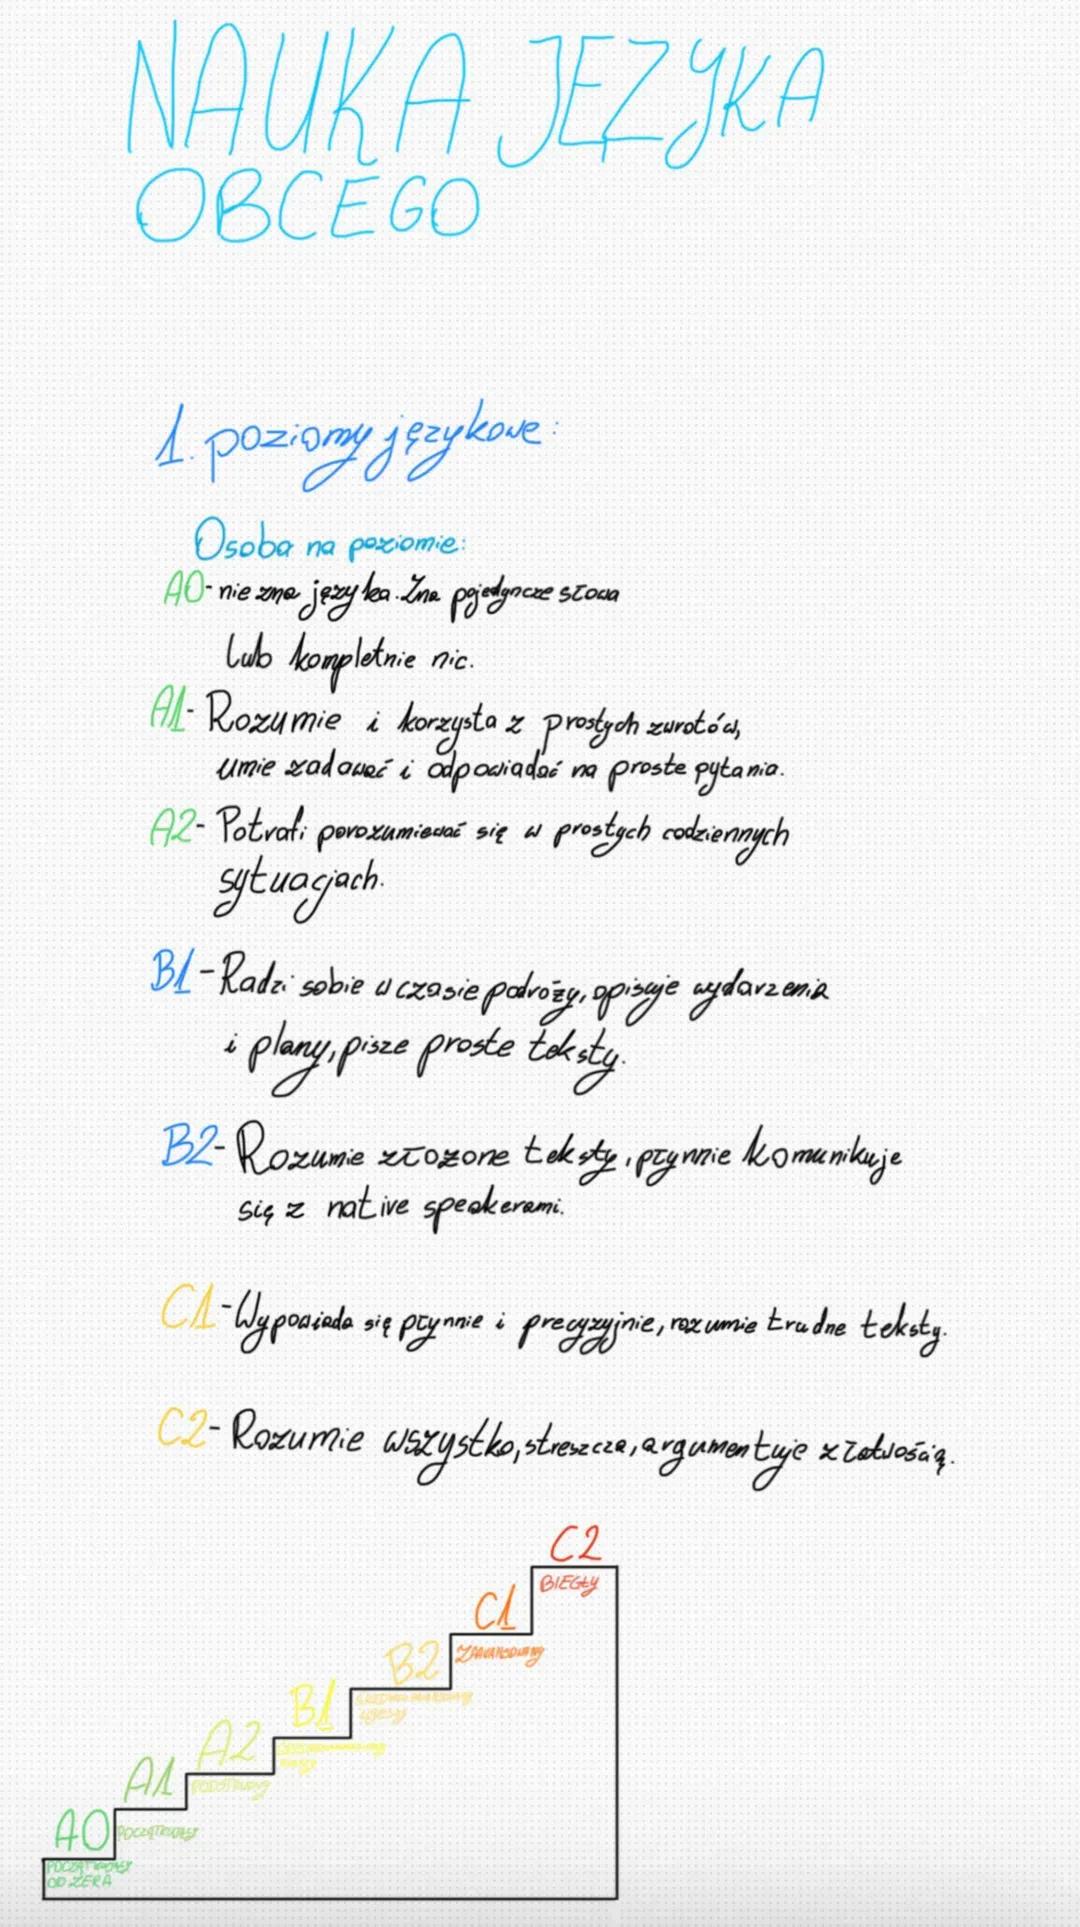 NAUKA JĘZYKA
OBCEGO
1. poziomy językowe:
Osoba na poziomie:
A0- nie zna języka. Zna pojedyncze słowa
lub kompletnie nic.
A1- Rozumie i korzysta z prostych zwrotów,
umie zadawać i odpowiadać na proste pytania.
A2- Potrafi porozumiewać się w prostych codziennych
sytuacjach.
B1- Radzi sobie w czasie podróży, opisuje wydarzenia
i plany, pisze proste teksty.
B2- Rozumie złożone teksty, płynnie komunikuje
się z native speakerami.
C1- Wypowiada się płynnie i precyzyjnie, rozumie trudne teksty.
C2- Rozumie wszystko, streszcza, argumentuje z łatwością.
C2
BIEGŁY
C1
ZAAWANSOWANY
B2
WYŻSZY
B1
A2
PODSTAWOWY
A1
POCZĄTKUJĄCY
A0
POCZĄTKUJĄCY
OD ZERA